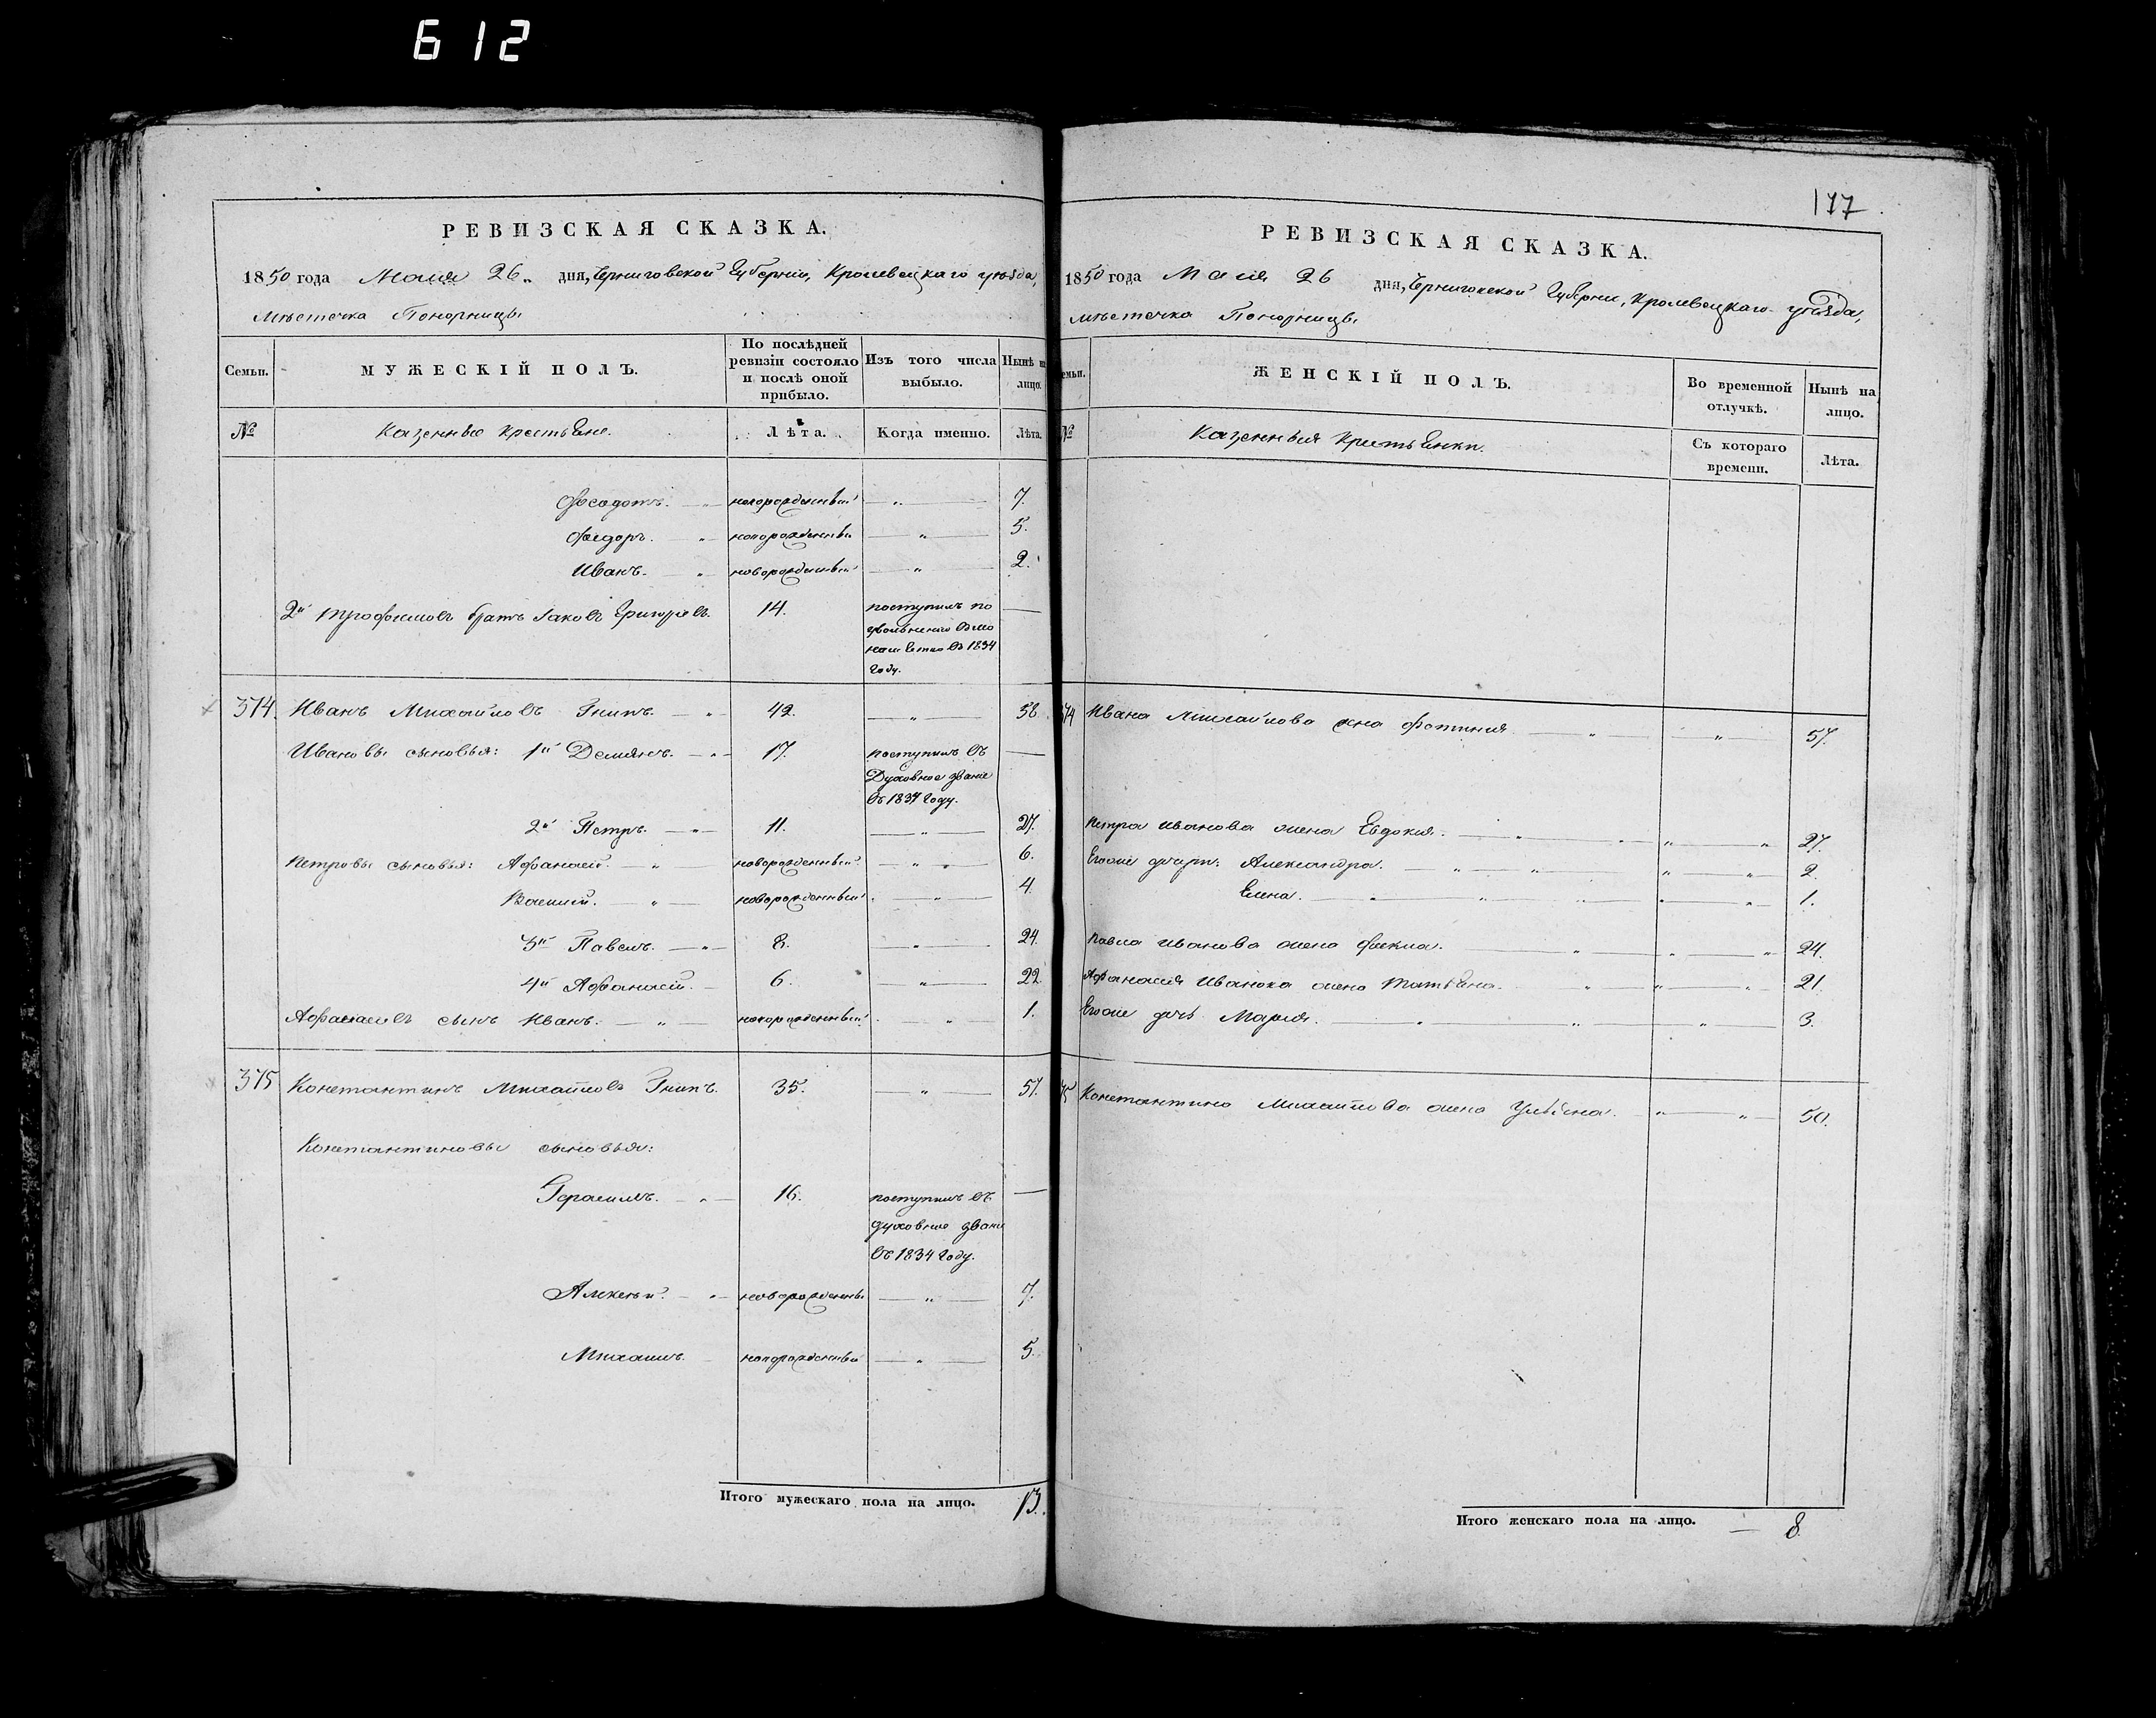 612
РЕВИЗСКАЯ СКАЗКА.
1850 года Маія 26 дня, Черниговской Губерніи, Кролевецкаго уѣзда,
мѣстечка Понорницы
Семьи.
МУЖЕСКІЙ ПОЛЪ.
По послѣдней ревизіи состояло и послѣ оной прибыло.
Изъ того числа выбыло.
Нынѣ на лицо.
№
Казенные крестьяне.
Лѣта.
Когда именно.
Лѣта.
Феодотъ. — новорожденный — „ — 7.
Федоръ. — „ новорожденны — „ — 5.
Иванъ. — „ новорожденный — „ — 2.
2й Трофимовъ братъ Іаковъ Григорьевъ. 14. поступилъ по —
увольненію въ мо
нашество въ 1834
году.
374. Иванъ Михайловъ Гнипъ. — „ 42. — „ — 58
Ивановы сыновья: 1й Демянъ. — „ — 17. поступилъ въ —
Духовное званіе
въ 1834 году.
2й Петръ. — „ — 11. — „ — 27.
Петровы сыновья: Афанасій. — „ новорожденный — „ — 6.
Василій. — „ — новорожденный — „ — 4.
3й Павелъ. — „ — 8. — „ — 24.
4й Афанасій. — 6. — „ — 22.
Афанасіевъ сынъ Иванъ. — „ — новорожденный — „ 1.
375 Константинъ Михайловъ Гнипъ. 35. — „ — 51.
Константиновы сыновья:
Герасимъ. — „ — 16. поступилъ въ —
духовное званіе
въ 1834 году.
Алексѣй. — „ — новорожденны — „ — 7.
Михаилъ. новорожденный — „ — 5.
Итого мужескаго пола на лицо. 13.
117
РЕВИЗСКАЯ СКАЗКА.
1850 года Маія 26 дня, Черниговской Губерніи, Кролевецкаго уѣзда,
мѣстечка Понорницы
Семьи.
ЖЕНСКІЙ ПОЛЪ.
Во временной отлучкѣ.
Нынѣ на лицо.
№
Казенныя крестьянки.
Съ котораго времени.
Лѣта.
374 Ивана Михайлова жена Фотинія — „ — „ — 57.
Петра Иванова жена Евдокія. — „ — „ — „ 27.
Егоже дочери: Александра. — „ — „ — „ — „ 2.
Елена. — „ — „ — „ 1.
Павла Иванова жена Фекла. — „ — „ — „ 24.
Афанасія Иванова жена Татьяна. — „ — „ — „ 21.
Егоже дочь Марія. — „ — „ — „ — 3.
375 Константина Михайлова жена Ульяна. „ — „ — 50.
Итого женскаго пола на лицо. — 8.